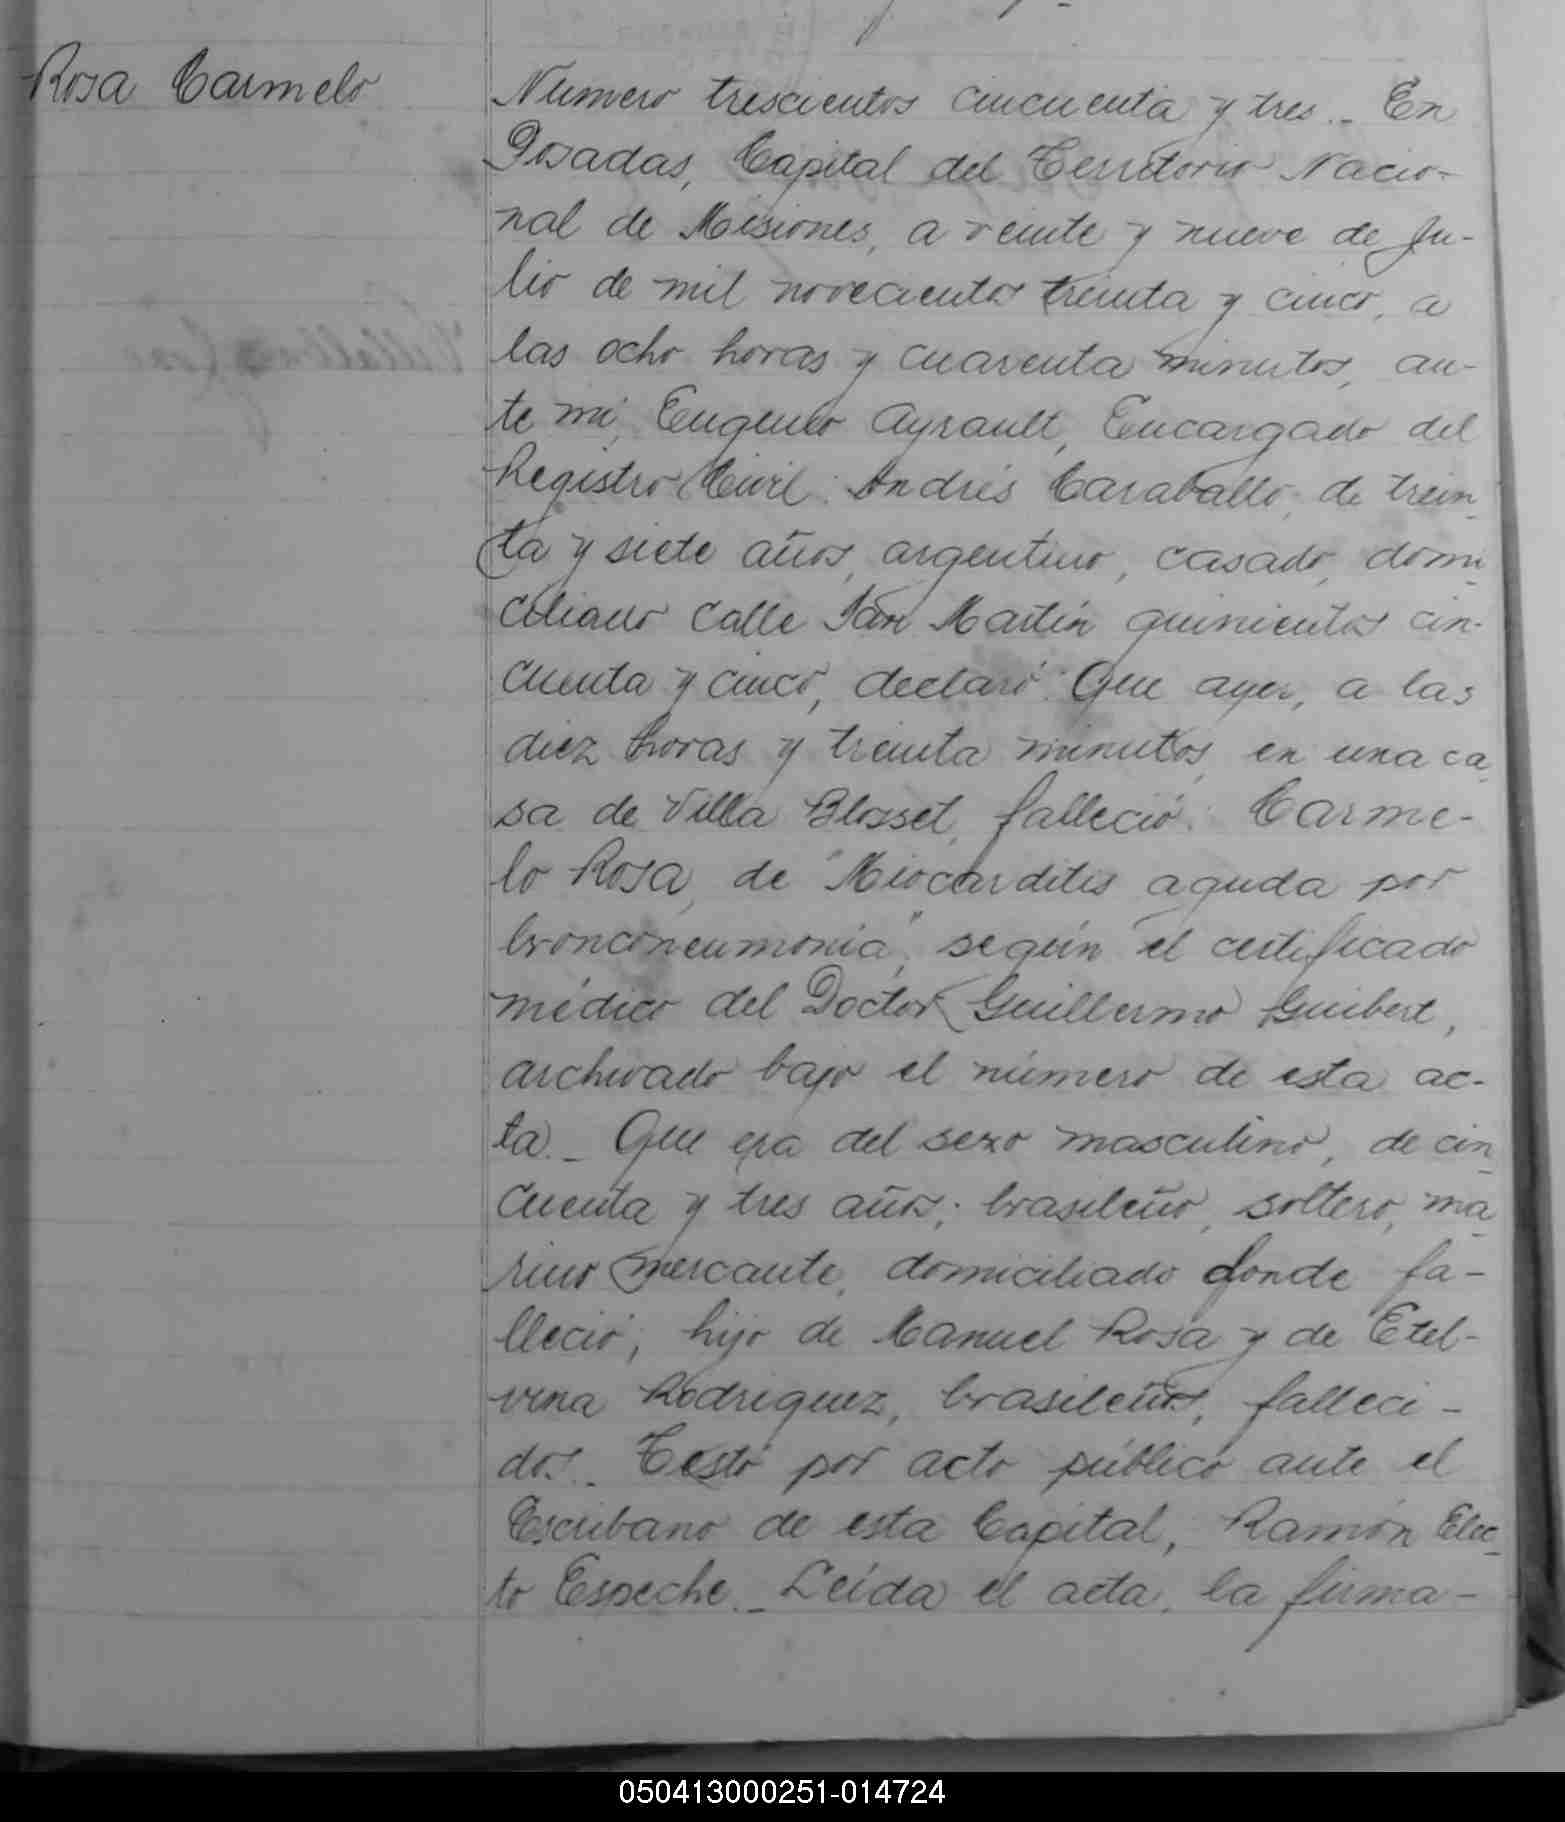 Rosa Carmelo
Número trescientos cincuenta y tres._ En
Posadas, Capital del Territorio Nacio-
nal de Misiones, a veinte y nueve de Ju-
lio de mil novecientos treinta y cinco, a
las ocho horas y cuarenta minutos, an-
te mí, Eugenio Ayrault, Encargado del
Registro Civil: Andrés Caraballo, de trein_
ta y siete años, argentino, casado, domi_
ciliado calle San Martín quinientos cin-
cuenta y cinco, declaró: Que ayer, a las
diez horas y treinta minutos, en una ca_
sa de Villa Blosset, falleció: Carme-
lo Rosa, de "Miocarditis aguda por
bronconeumonia", según el certificado
médico del Doctor Guillermo Guibert,
archivado bajo el número de esta ac-
ta._ Que era del sexo masculino, de cin_
cuenta y tres años; brasileño, soltero, ma_
rino mercante, domiciliado donde fa-
lleció; hijo de Manuel Rosa y de Etel-
vina Rodriguez, brasileños, falleci-
dos._ Testó por acto público ante el
Escribano de esta Capital, Ramón Elec_
to Espeche._ Leída el acta, la firma-
050413000251-014724